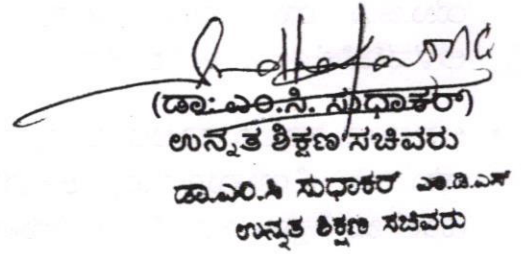 (ಡಾ: ಎಂ.ಸಿ. ಸುಧಾಕರ್)
ಉನ್ನತ ಶಿಕ್ಷಣ ಸಚಿವರು
ಡಾ.ಎಂ.ಸಿ ಸುಧಾಕರ್ ಎಂ.ಡಿ.ಎಸ್
ಉನ್ನತ ಶಿಕ್ಷಣ ಸಚಿವರು